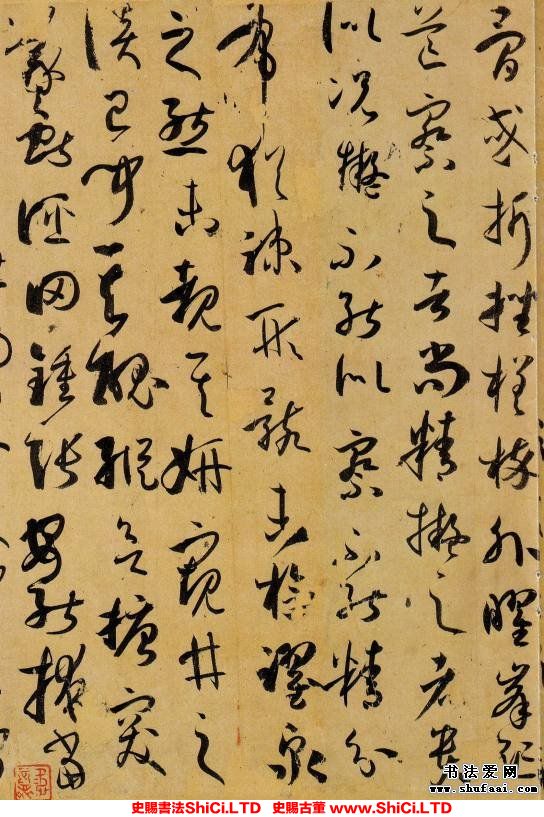 骨或折挫槎枿外曜峯
芒察之者尚精擬之者貴
似況擬不能似察不能精分
布猶疎形骸未檢躍泉
之態未覩其妍窺井之
談已聞其醜縱欲搪突
羲獻誣罔鍾張安能掩當
书法爱网
www.shufaai.com
史賜書法ShiCi.LTD 史賜古董 www.ShiCi.LTD